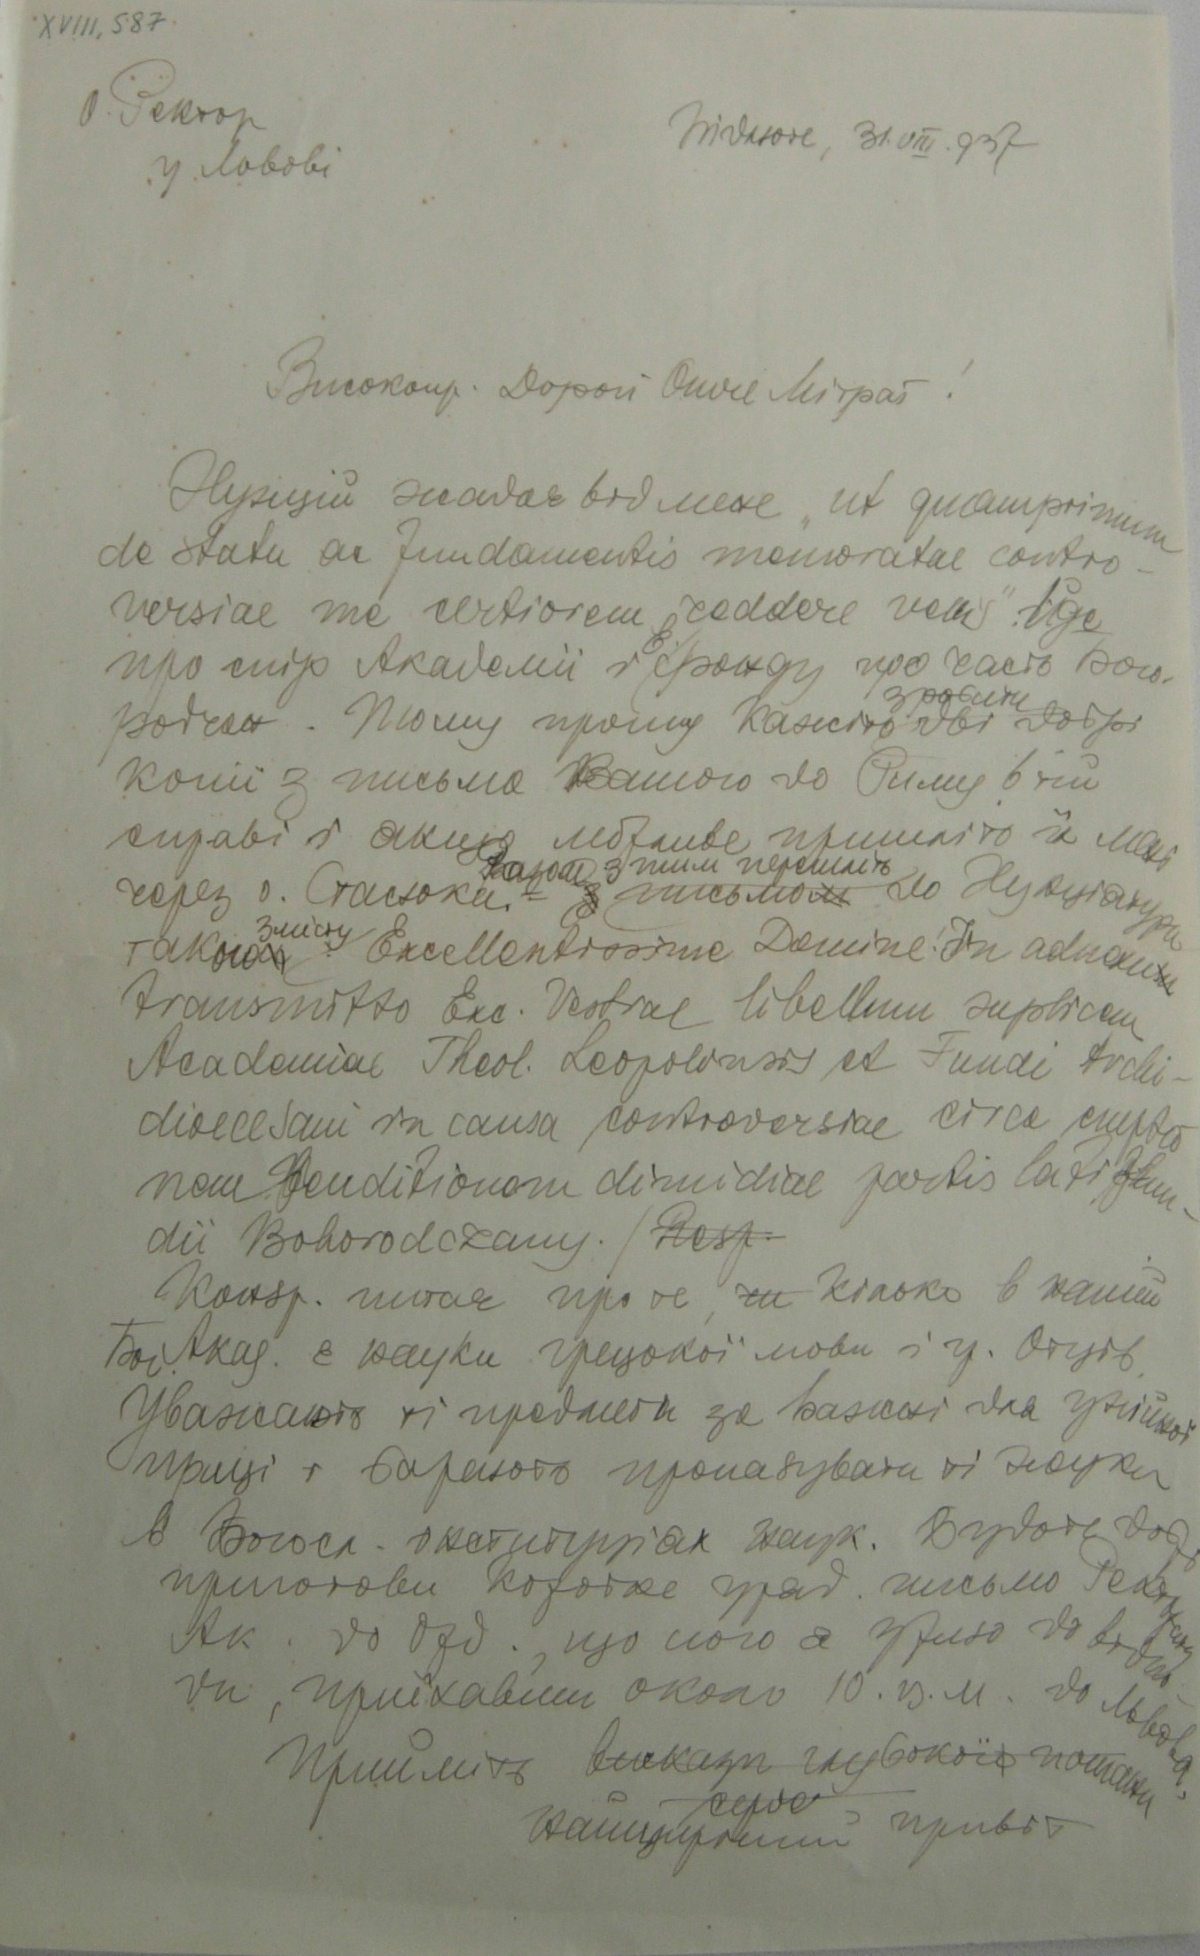 XVIII, 587
О. Ректор
у Львові
Підлюте, 31.VIII.937
Високопр. Дорогий Отче Мітрат!
Нунцій жадає від мене „ut quamprimum
de statu ac fundamentis memoratae contro-
versiae me certiorem reddere velis". Йде
про спір Академії і Фонду про часть Бого-
родчан. Тому прошу кажіть зробити дві добрі
копії з письма Вашого до Риму в тій
справі і акцію пришліть й мені
через о. Стасюка. – Разом з тим перешліть з письмом до Нунціятури
такого змісту: Excellentissime Domine! In adnexu
transmitto Exc. Vestrae libellum suplicem
Academiae Theol. Leopoliensis et Fundi Archi-
dioecesani in causa controversiae circa emptio
nem venditionem dimidiae partis latifun-
dii Bohorodczany. / Resp.
Конгр. питає про те, чи кілько в нашій
Бог. Акад. є науки грецької мови і гр. Отців.
Уважають ті предмети за важні для унійної
праці і бажають пропагувати ті науки
в Богосл. інституціях наук. Будьте добрі
приготови коротке уряд. письмо Ректорату
Ак. до Орд., що його я ужию до відпо-
ди, приїхавши около 10. в.м. до Львова.
Прийміть вискази глибокої пошани
серде
найщиріший привіт